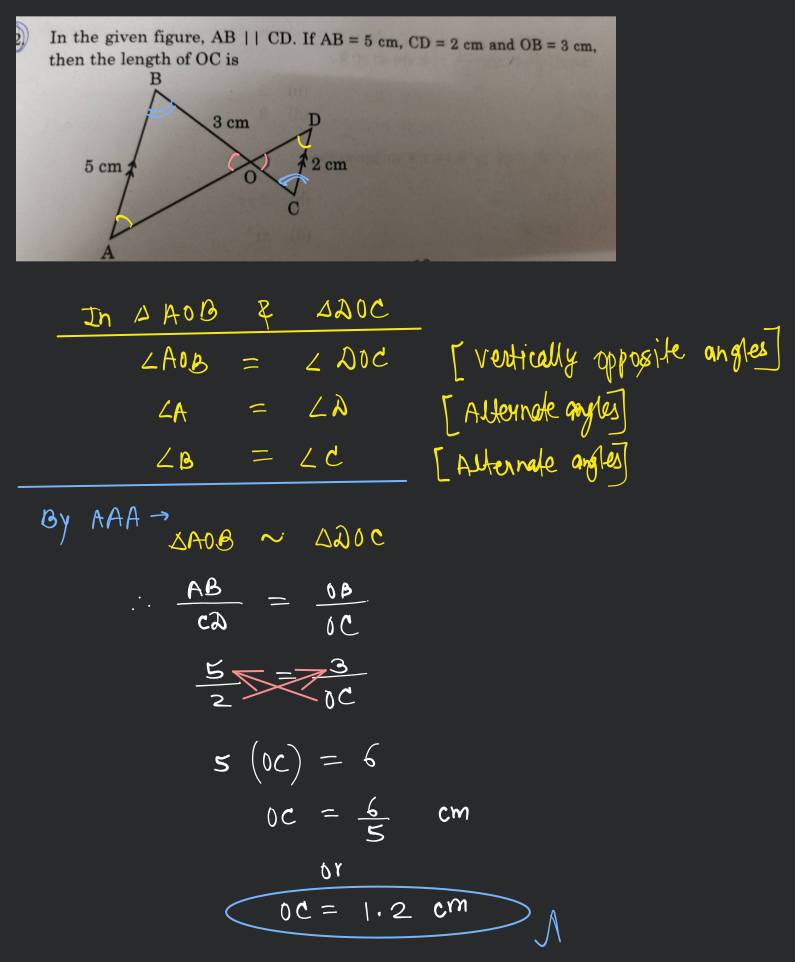 2. In the given figure, AB || CD. If AB = 5 cm, CD = 2 cm and OB = 3 cm,
then the length of OC is
B
3 cm
D
5 cm
2 cm
O
C
A
In Δ AOB & ΔDOC
∠AOB = ∠DOC [Vertically opposite angles]
∠A = ∠D [Alternate angles]
∠B = ∠C [Alternate angles]
By AAA →
ΔAOB ~ ΔDOC
∴ AB/CD = OB/OC
5/2 = 3/OC
5 (OC) = 6
OC = 6/5 cm
or
OC = 1.2 cm